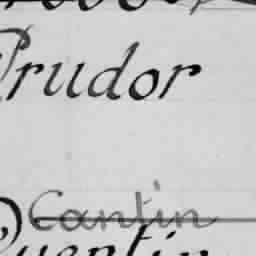 Prudor
Cantin
Quentin